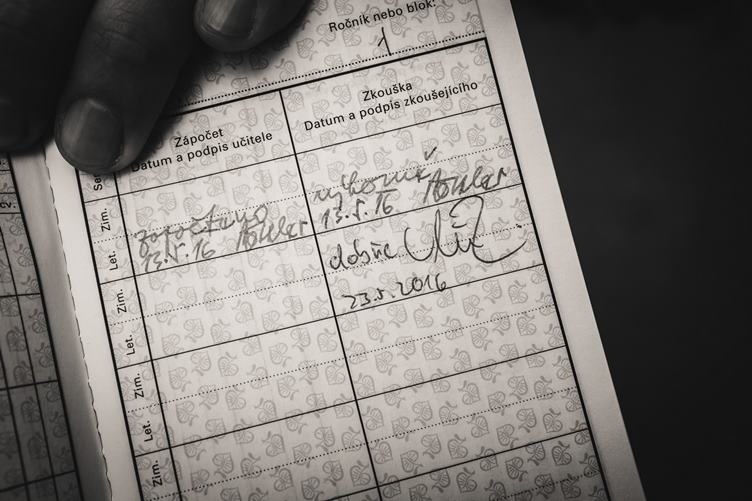 Ročník nebo blok:
1
Zápočet
Datum a podpis učitele
Zkouška
Datum a podpis zkoušejícího
Zim.
započteno
výborně
13.5.16
Let.
13.5.16
dobře
Zim.
23.5.2016
Let.
Zim.
Let.
Zim.